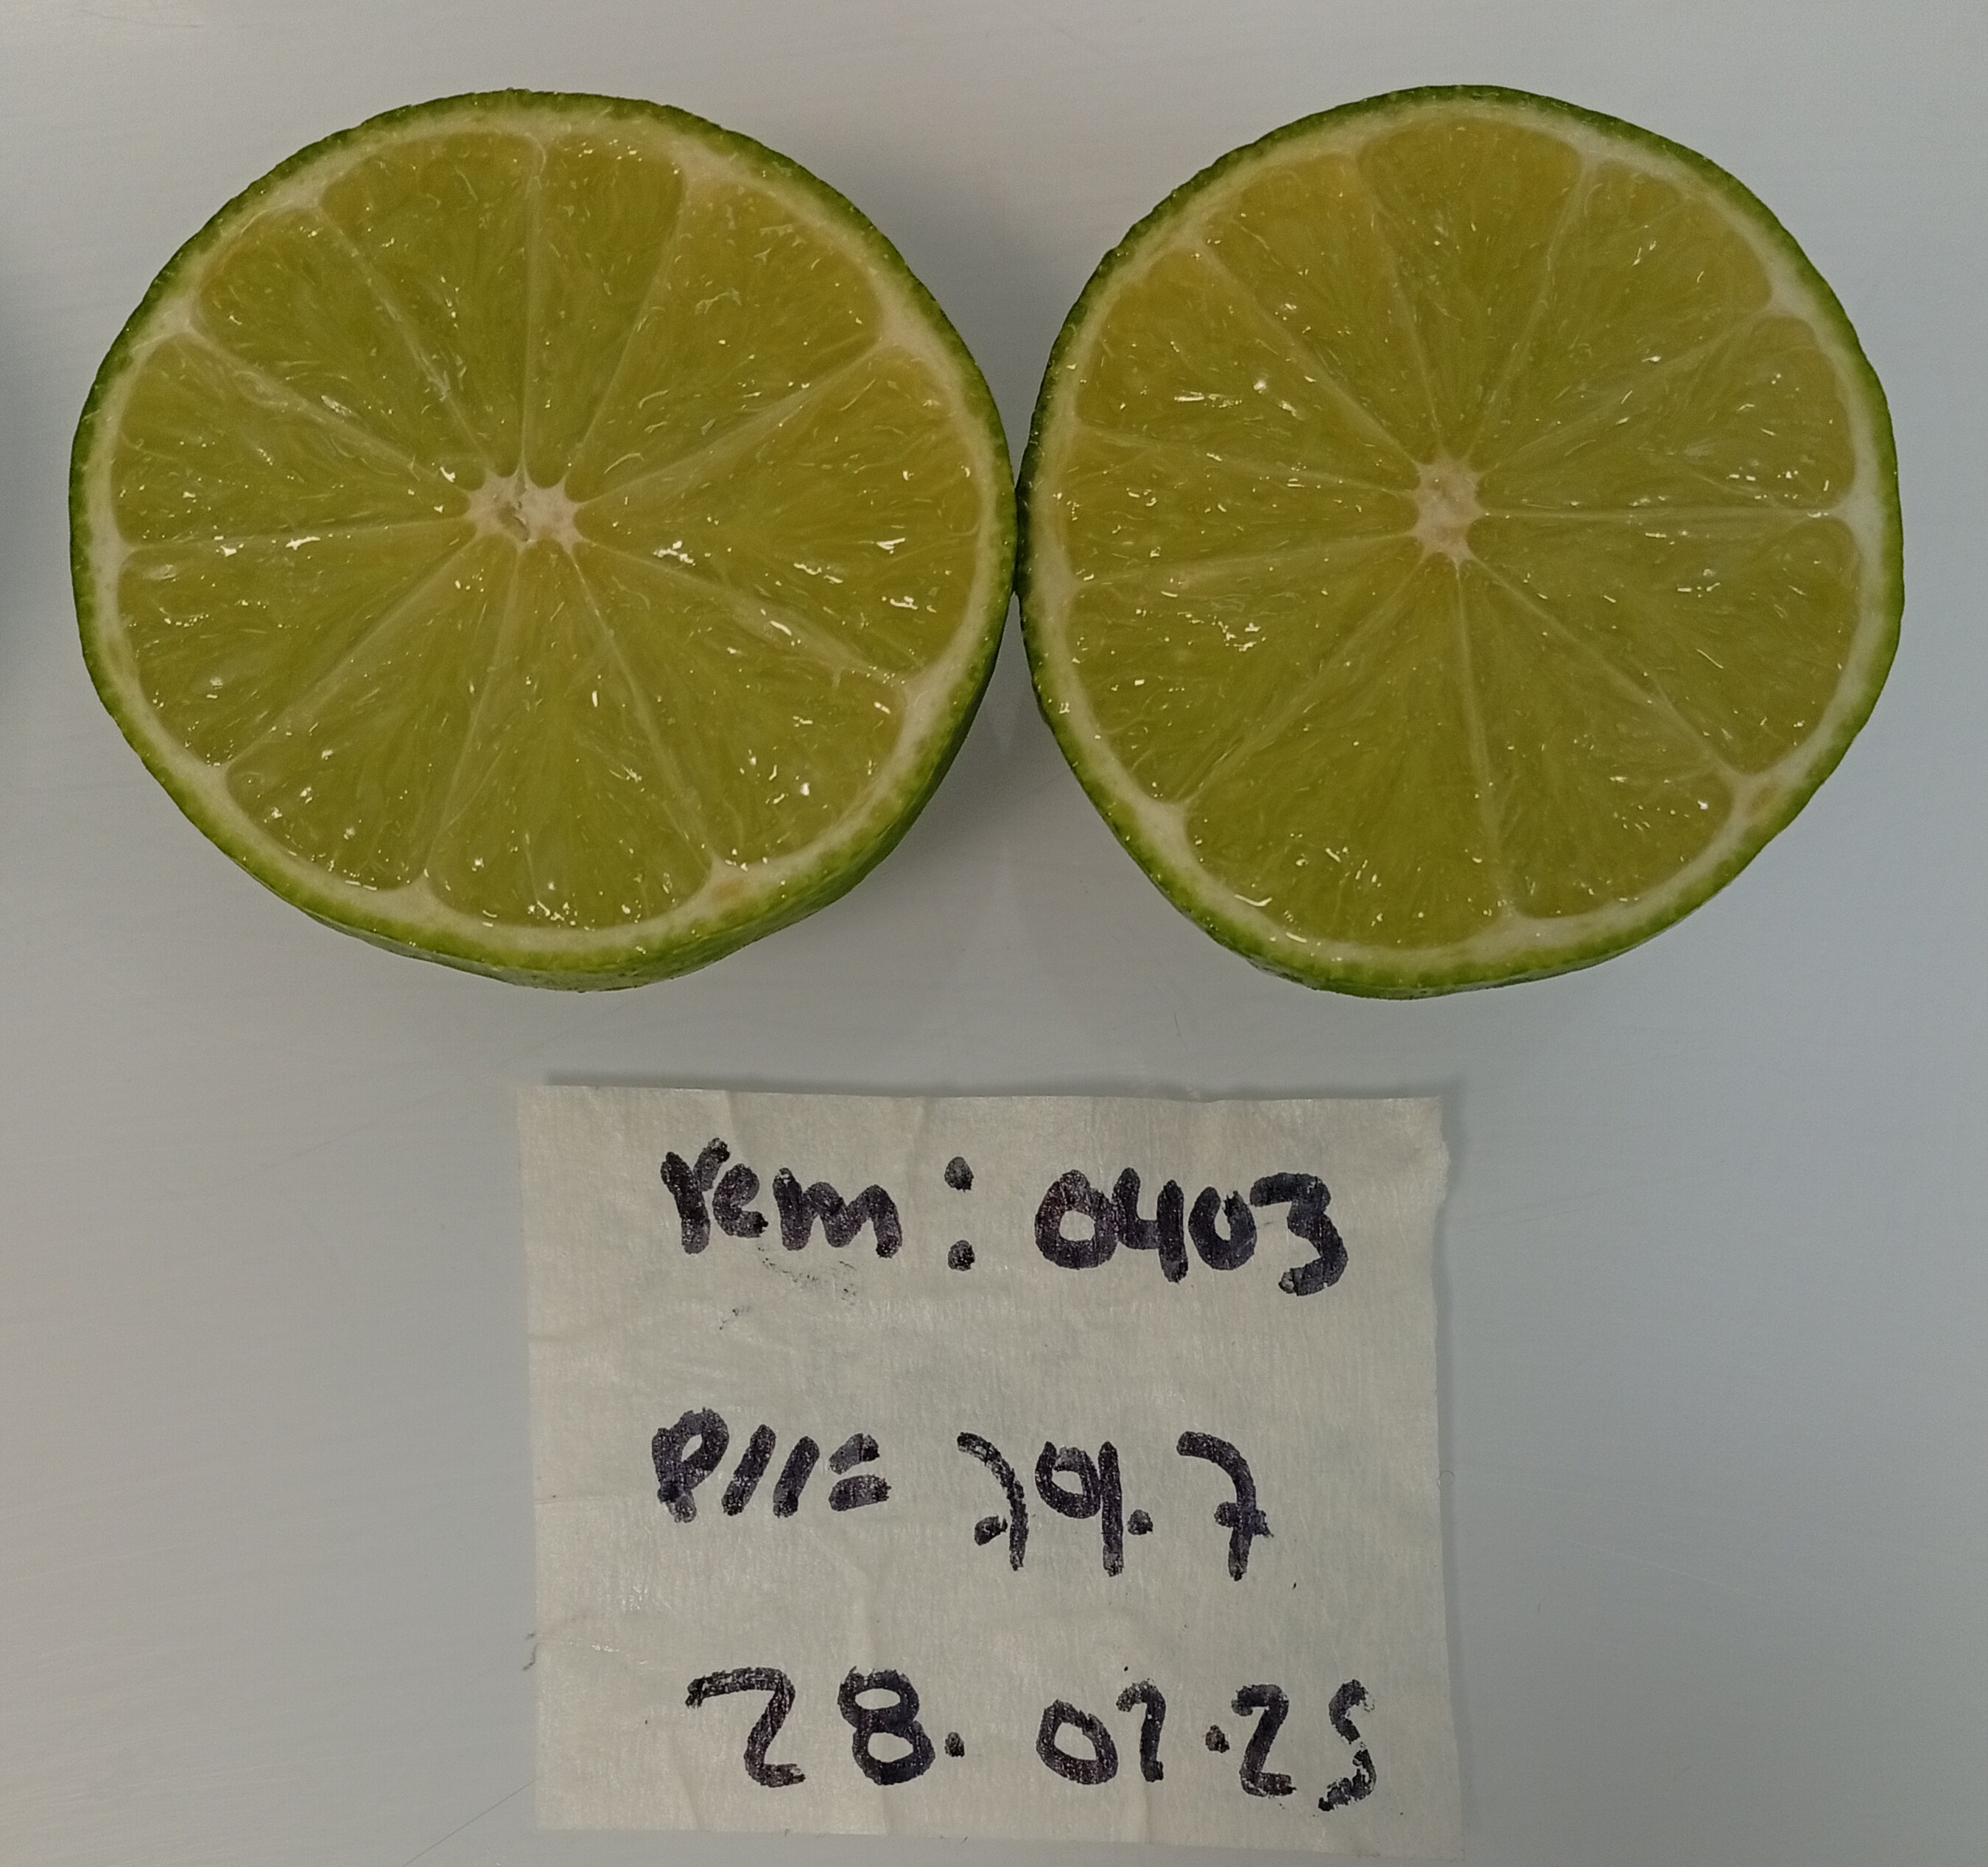 rem: 0403
P11= 79.7
28.01.25